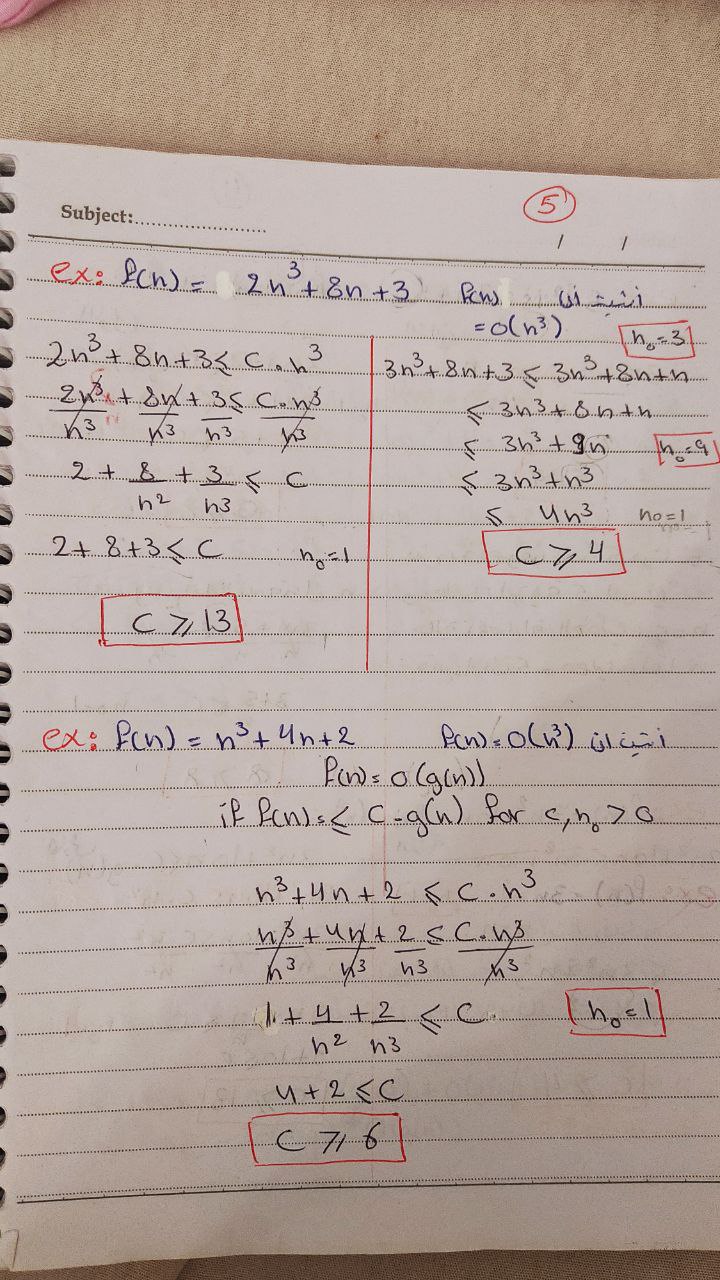 Subject:
5
/ /
ex: f(n) = 2n³ + 8n + 3 أثبت ان f(n) = O(n³)
2n³ + 8n + 3 ≤ C . n³
2n³/n³ + 8n/n³ + 3/n³ ≤ C . n³/n³
2 + 8/n² + 3/n³ ≤ C
2 + 8 + 3 ≤ C n₀ = 1
C ≥ 13
n₀ = 3
3n³ + 8n + 3 ≤ 3n³ + 8n + n
≤ 3n³ + 8n + n
≤ 3n³ + 9n n₀ = 9
≤ 3n³ + n³
≤ 4n³ n₀ = 1
C ≥ 4
ex: f(n) = n³ + 4n + 2 أثبت ان f(n) = O(n³)
f(n) = O(g(n))
if f(n) = ≤ C . g(n) for c, n₀ > 0
n³ + 4n + 2 ≤ C . n³
n³/n³ + 4n/n³ + 2/n³ ≤ C . n³/n³
1 + 4/n² + 2/n³ ≤ C n₀ = 1
4 + 2 ≤ C
C ≥ 6